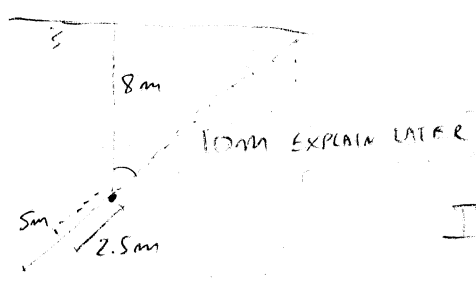 8m
10m EXPLAIN LATER
5m
2.5m
I